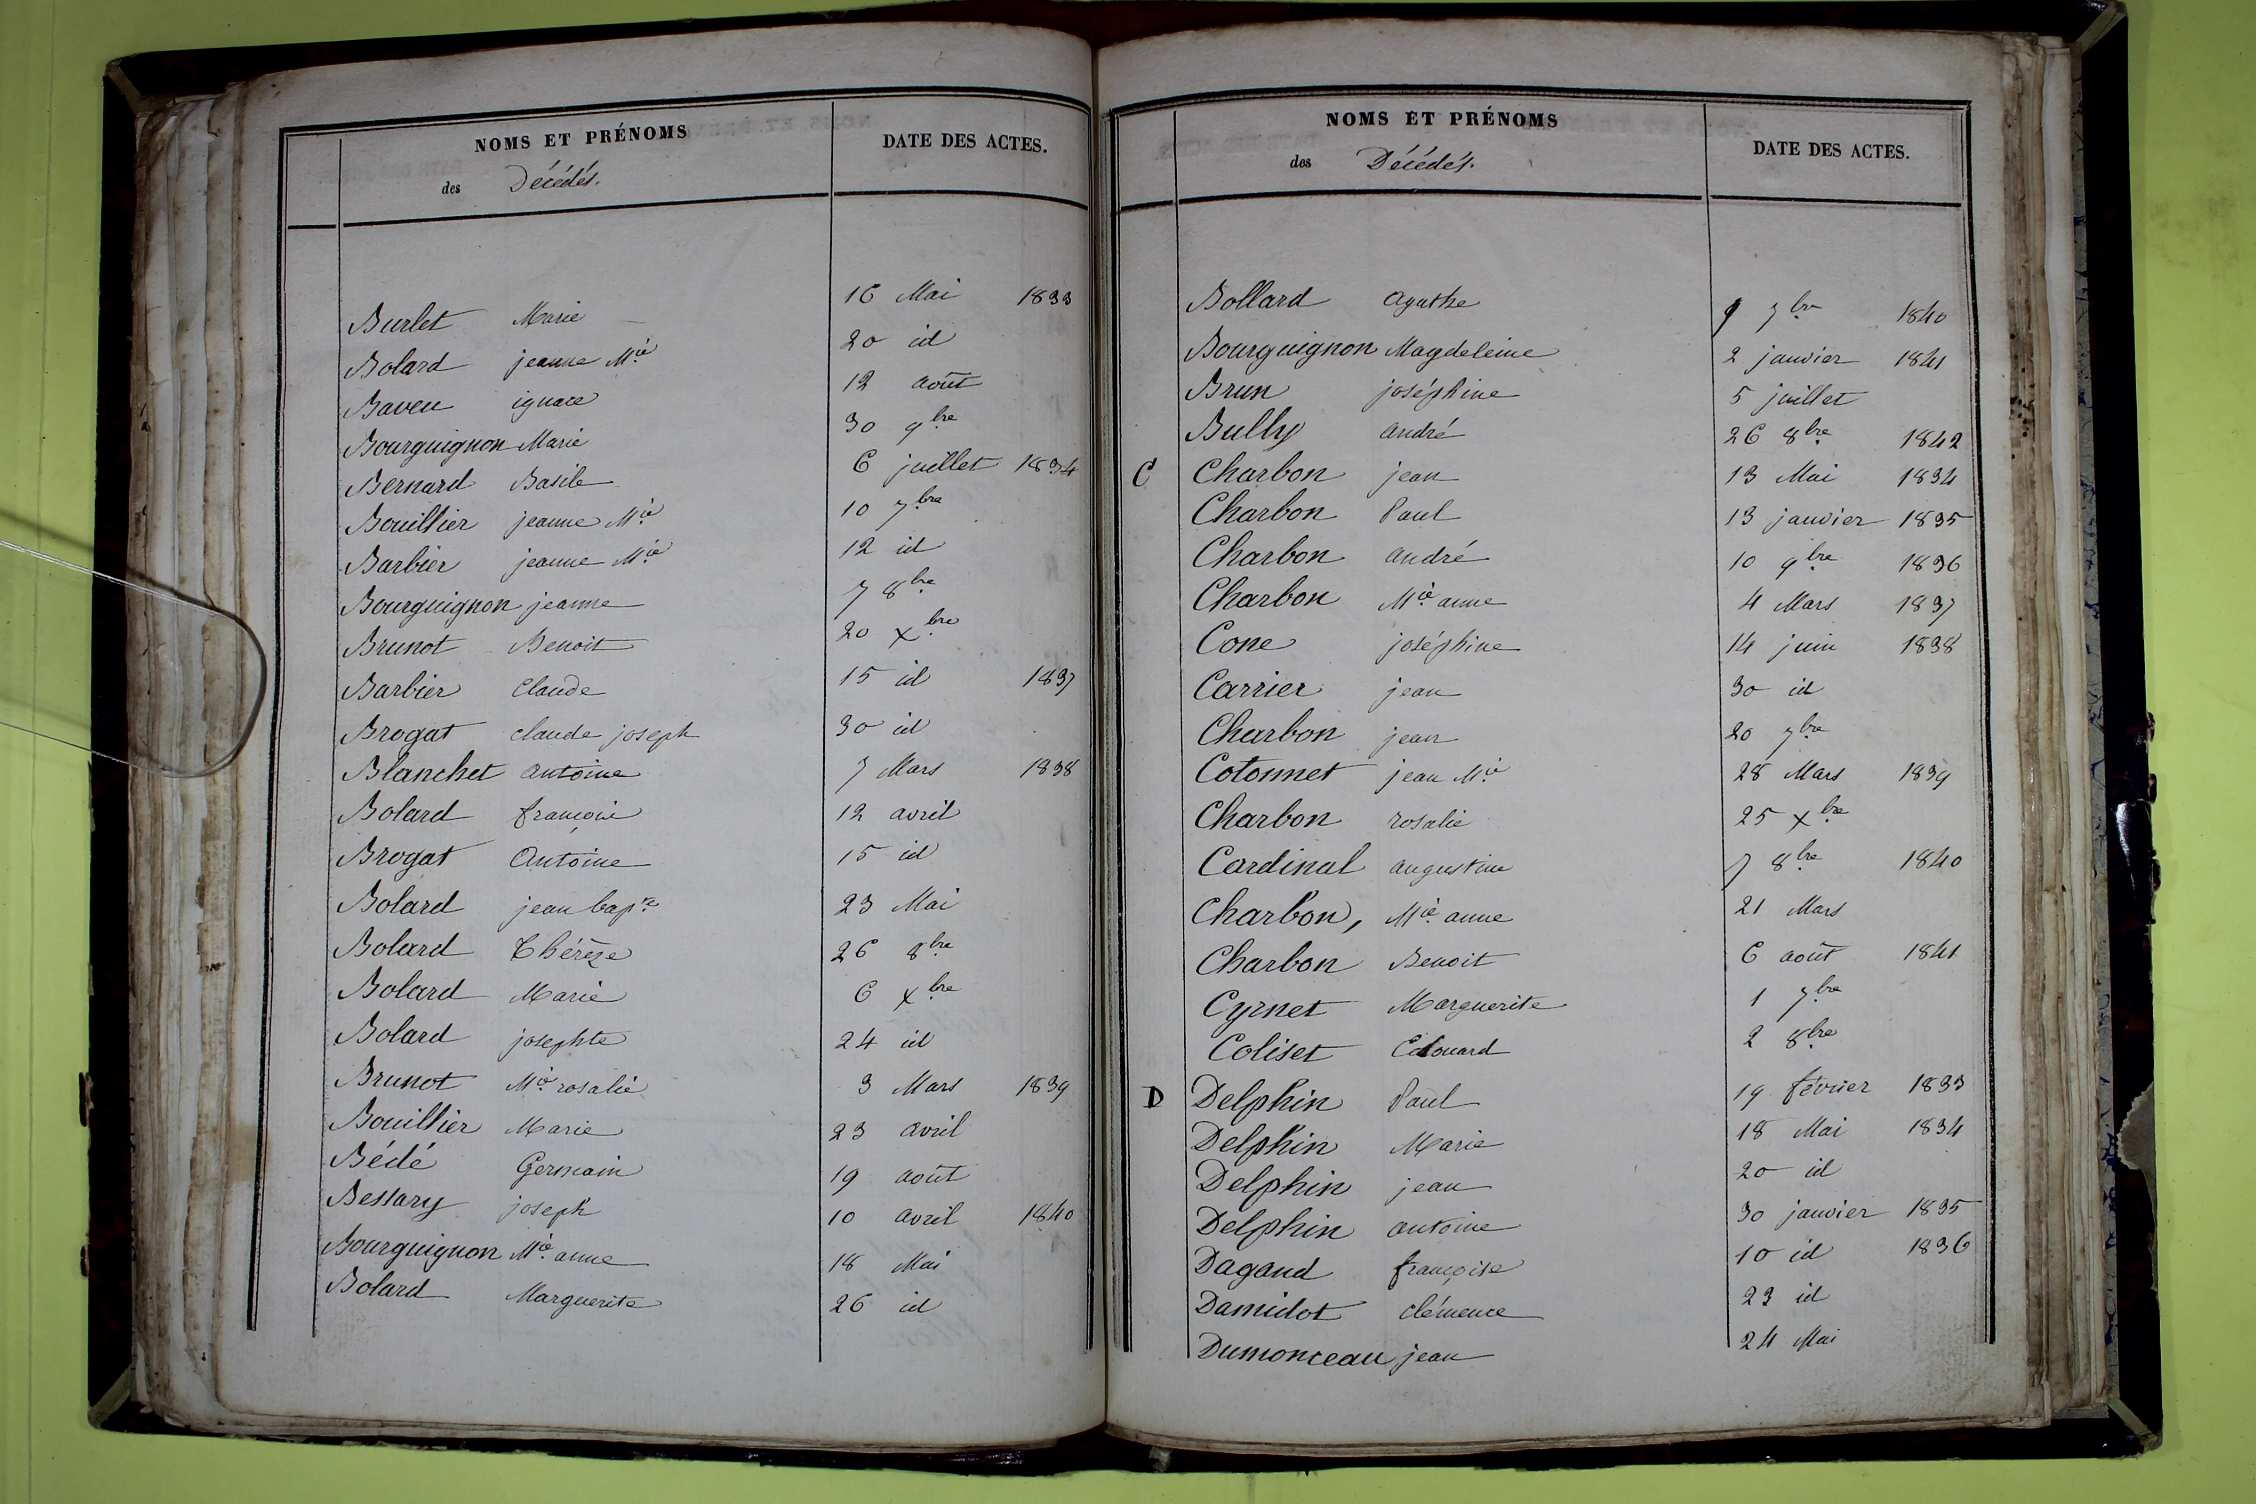 NOMS ET PRÉNOMS
des Décédés.
DATE DES ACTES.
Burlet Marie 16 Mai 1833
Bolard jeanne Mie 20 id
Baveu ignace 12 août
Bourguignon Marie 30 9bre
Bernard Basile 6 juillet 1834
Bouillier jeanne Mie 10 7bre
Barbier jeanne Mie 12 id
Bourguignon jeanne 7 8bre
Brunot Benoit 20 xbre
Barbier Claude 15 id 1837
Brogat claude joseph 30 id
Blanchet antoine 7 Mars 1838
Bolard françois 12 avril
Brogat Antoine 15 id
Bolard jean bapte 23 Mai
Bolard Thérèze 26 8bre
Bolard Marie 6 xbre
Bolard josephte 24 id
Brunot Mie rosalie 3 Mars 1839
Bouillier Marie 23 avril
Bédé Germain 19 août
Bessary joseph 10 avril 1840
Bourguignon Mie anne 18 Mai
Bolard Marguerite 26 id
NOMS ET PRÉNOMS
des Décédés.
DATE DES ACTES.
Bollard agathe 9 7bre 1840
Bourguignon Magdeleine 2 janvier 1841
Brun joséphine 5 juillet
Bully andré 26 8bre 1842
C Charbon jean 13 Mai 1834
Charbon Paul 13 janvier 1835
Charbon andré 10 9bre 1836
Charbon Mie anne 4 Mars 1837
Cone joséphine 14 juin 1838
Carrier jean 30 id
Charbon jean 20 7bre
Cotonnet jean Mie 28 Mars 1839
Charbon rosalie 25 xbre
Cardinal augustine 7 8bre 1840
Charbon, Mie anne 21 Mars
Charbon Benoit 6 août 1841
Cyrnet Marguerite 1 7bre
Coliset Edouard 2 8bre
D Delphin Paul 19 février 1833
Delphin Marie 18 Mai 1834
Delphin jean 20 id
Delphin antoine 30 janvier 1835
Dagand françoise 10 id 1836
Damidot clémence 23 id
Dumonceau jean 24 Mai